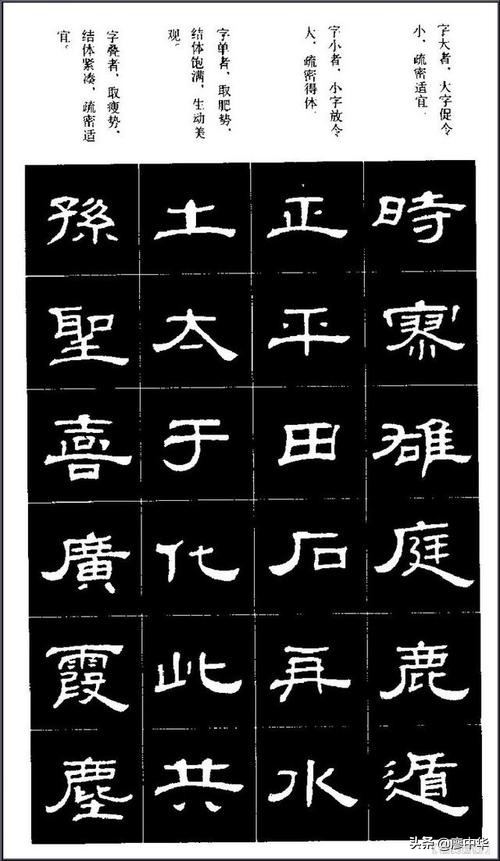 字大者，大字促令
小，疏密适宜。
字小者，小字放令
大，疏密得体。
字单者，取肥势，
结体饱满，生动美
观。
字叠者，取瘦势，
结体紧凑，疏密适
宜。
時雄庭鹿遁
正平田石再水
土太于化此共
孫聖喜廣霞塵
头条@廖中华